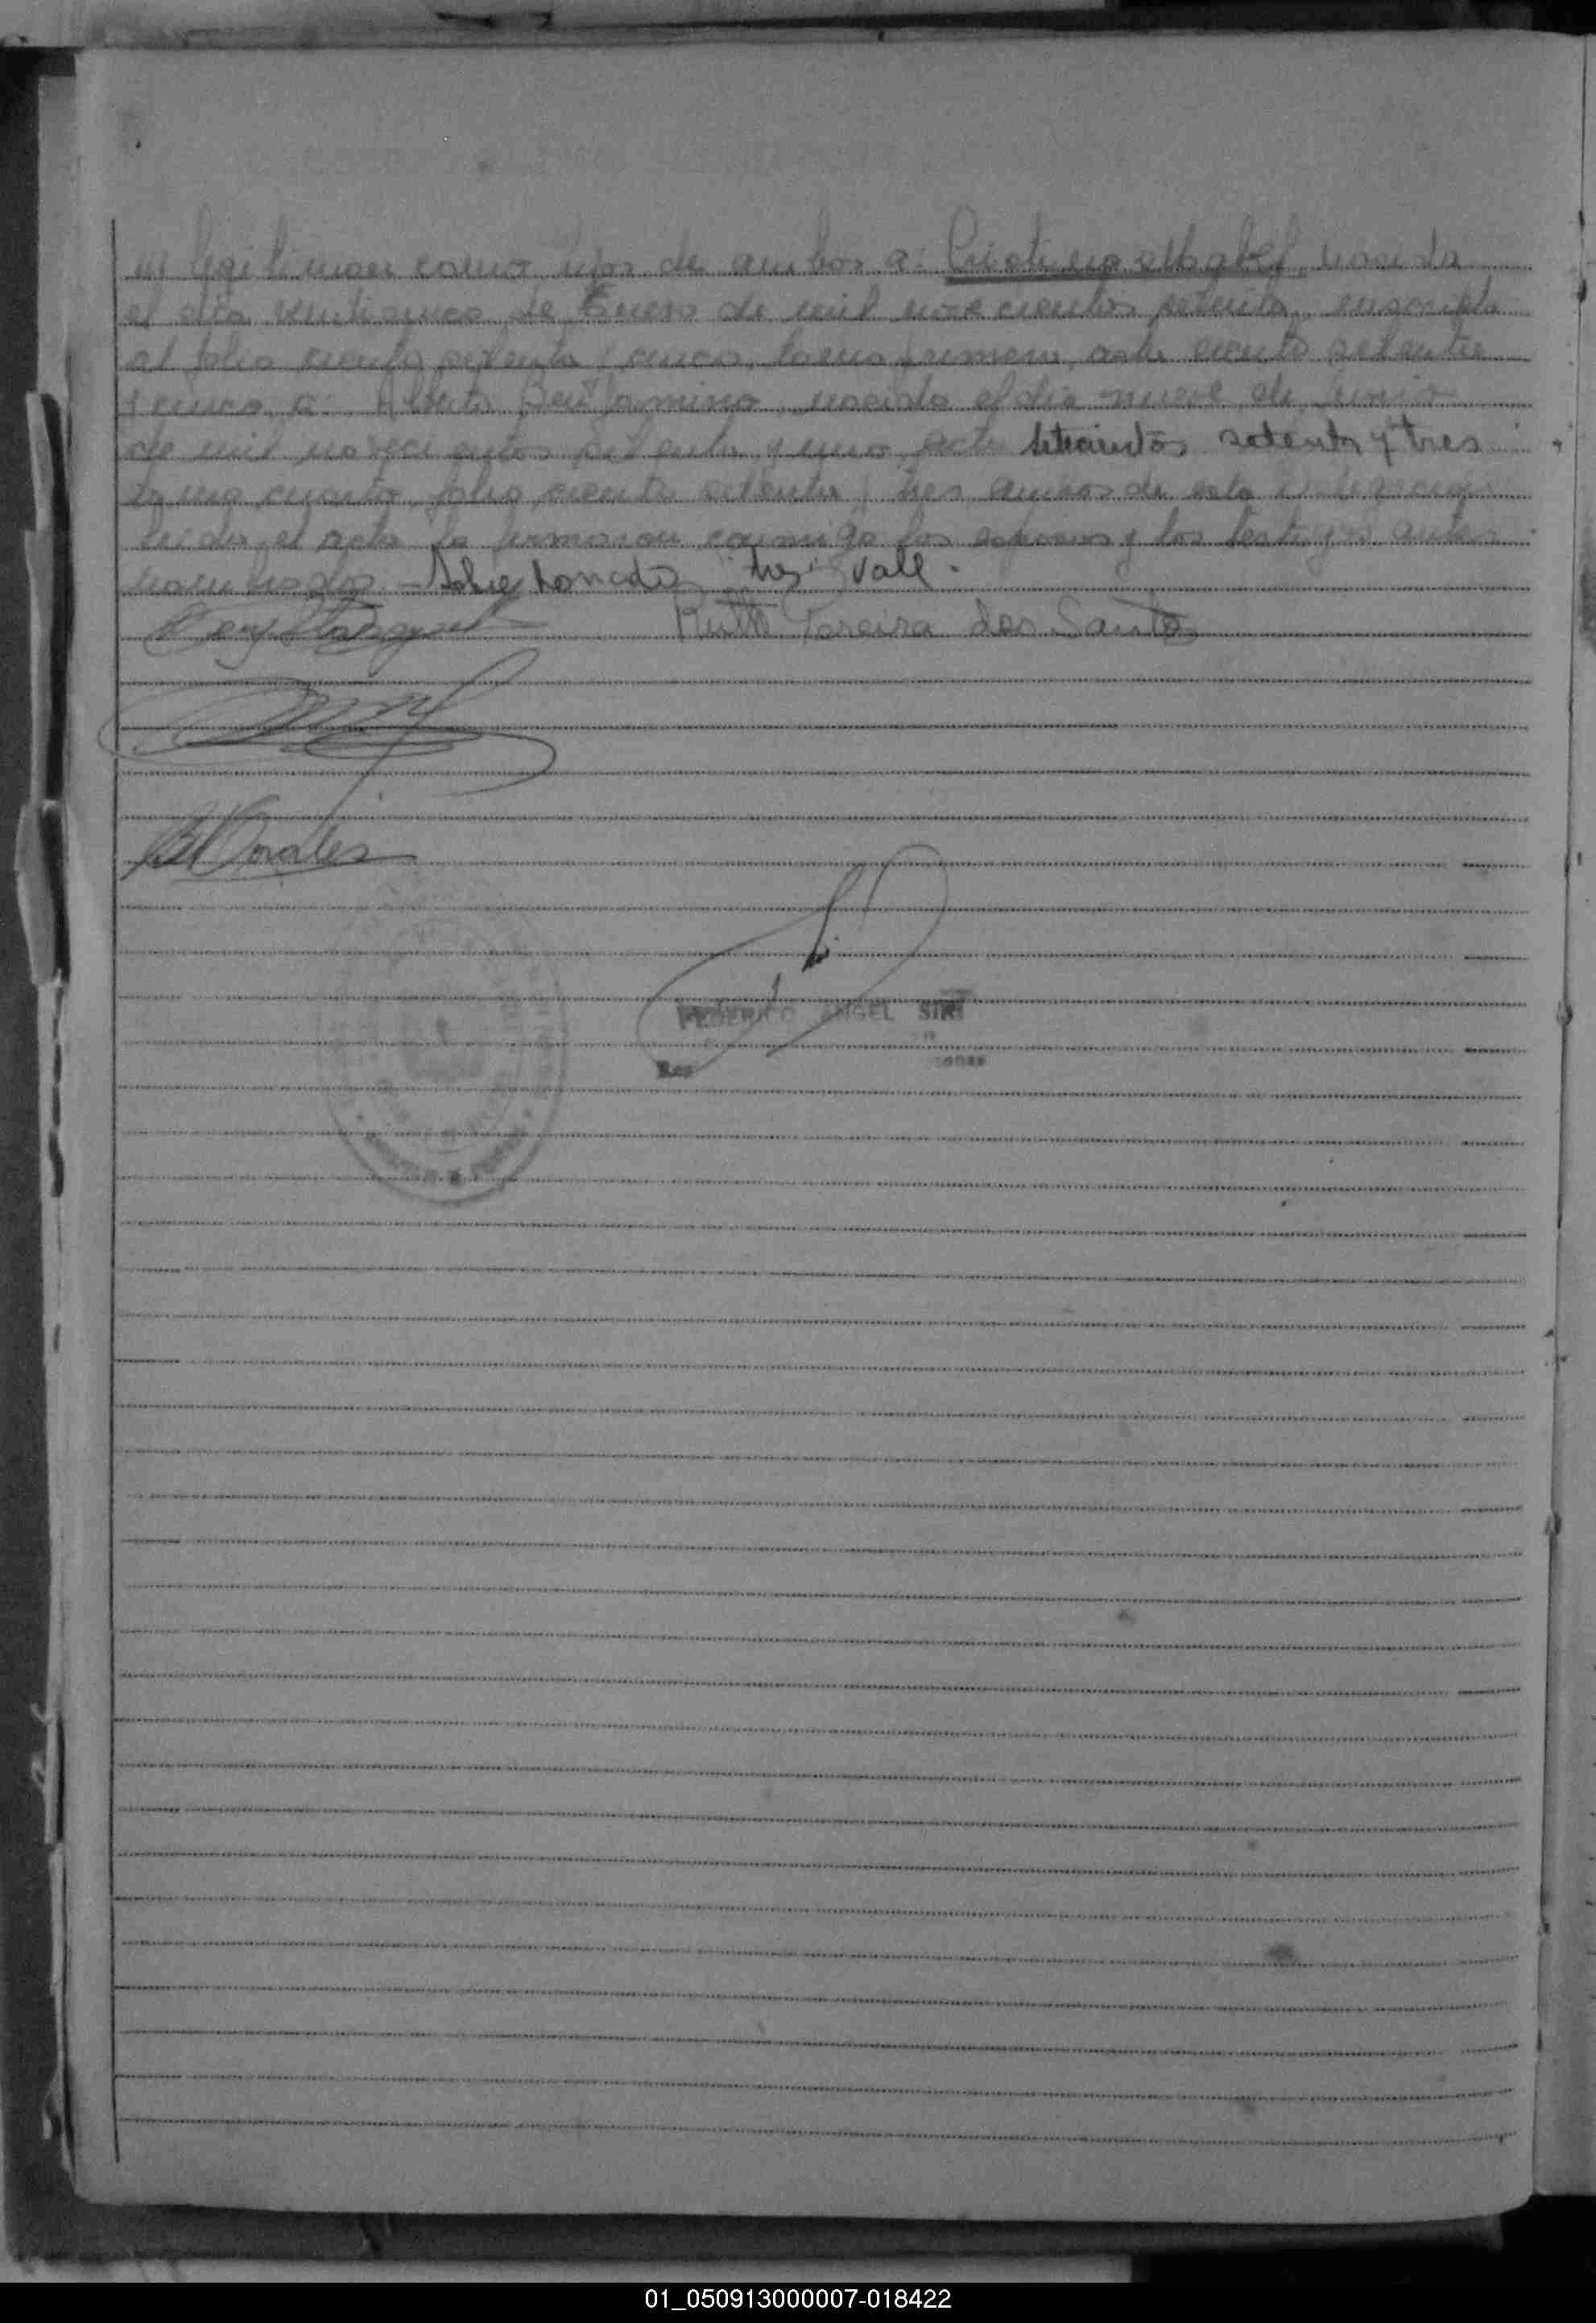 legitiman como hijos de ambos a: Cristina Mabel, nacida
el día veinticinco de Enero de mil novecientos setenta, inscripta
al folio ciento setenta y cinco, tomo primero, acta ciento setenta
y cinco, a: Alberto Benjamino, nacido el día nueve de Junio
de mil novecientos setenta y uno, acta setecientos setenta y tres
tomo cuarto, folio ciento setenta y tres, ambos de esta
leída el acta la firmaron conmigo los esposos y los testigos antes
nombrados.- Sobre borrado: tres: Vale.
Ruth Pereira dos Santos
B Morales
FEDERICO ANGEL SIRI
01_050913000007-018422